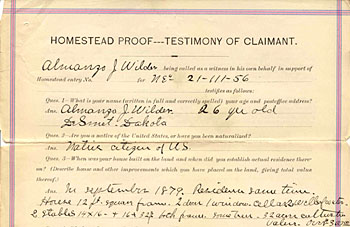 HOMESTEAD PROOF---TESTIMONY OF CLAIMANT.
Almanzo J Wilder being called as a witness in his own behalf in support of
Homestead entry No. for NE¼ 21-111-56
testifies as follows:
Ques. 1—What is your name (written in full and correctly spelled) your age and postoffice address?
Ans. Almanzo J. Wilder 26 yr old
De Smet Dakota
Ques. 2—Are you a native of the United States, or have you been naturalized?
Ans. Native citizen of US
Ques. 3—When was your house built on the land and when did you establish actual residence there-
on? (Describe house and other improvements which you have placed on the land, giving total
value thereof.)
Ans. In september 1879. Residence same time.
House 12 ft. square frame. 2 door 1 window. cellar
2 stables 14x16 + 16x32